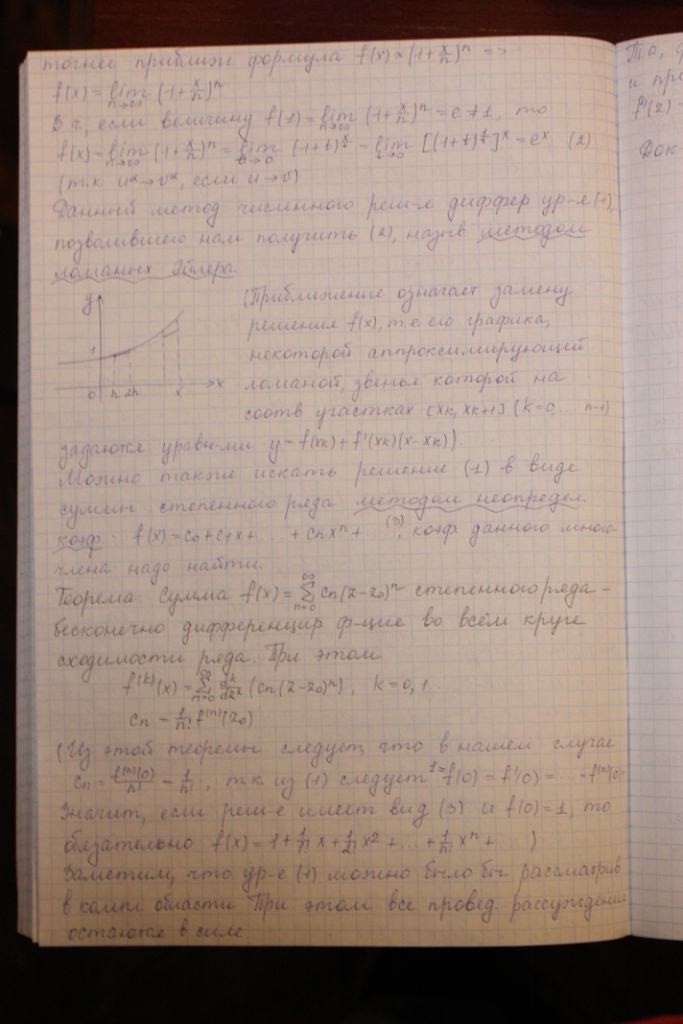 точней приближ формула f(x)≈(1+x/n)^n =>
f(x)=lim n→∞ (1+x/n)^n
В ч., если величину f(1)=lim n→∞ (1+x/n)^n=e≠1, то
f(x)=lim n→∞ (1+x/n)^n=lim t→0 (1+t)^(x/t)=lim t→0 [(1+t)^(1/t)]^x=e^x (2)
(т.к. u^α→v^α, если u→v)
Данный метод численного реш-я диффер ур-я (1),
позволившего нам получить (2), назыв методом
ломаных Эйлера.
y
1
0 h 2h x x
(Приближение означает замену
решения f(x), т.е. его графика,
некоторой аппроксимирующей
ломаной, звенья которой на
соотв участках [xk, xk+1] (k=0,... n-1)
задаются уравн-ми y=f(xk)+f'(xk)(x-xk)).
Можно также искать решение (1) в виде
суммы степенного ряда методом неопредел.
коэф: f(x)=c0+c1x+... +cnx^n+... (3), коэф данного много-
члена надо найти.
Теорема: Сумма f(x)=∑ n=0 ∞ cn(z-z0)^n степенного ряда -
бесконечно дифференцир ф-цие во всём круге
сходимости ряда. При этом
f^(k)(x)=∑ n=0 ∞ d^k/dz^k (cn(z-z0)^n), k=0,1..
cn=1/n! f^(n)(z0)
(Из этой теоремы следует, что в нашем случае
cn=f^(n)(0)/n!=1/n!, т.к. из (1) следует 1=f(0)=f'(0)=...=f^(n)(0)
Значит, если реш-е имеет вид (3) и f(0)=1, то
обязательно f(x)=1+1/1! x+1/2! x^2+...+1/n! x^n+...)
Заметим, что ур-е (1) можно было бы рассматрив
в комп области При этом все провед. рассуждения
остаются в силе
То,
и про
f'(2)=
Док